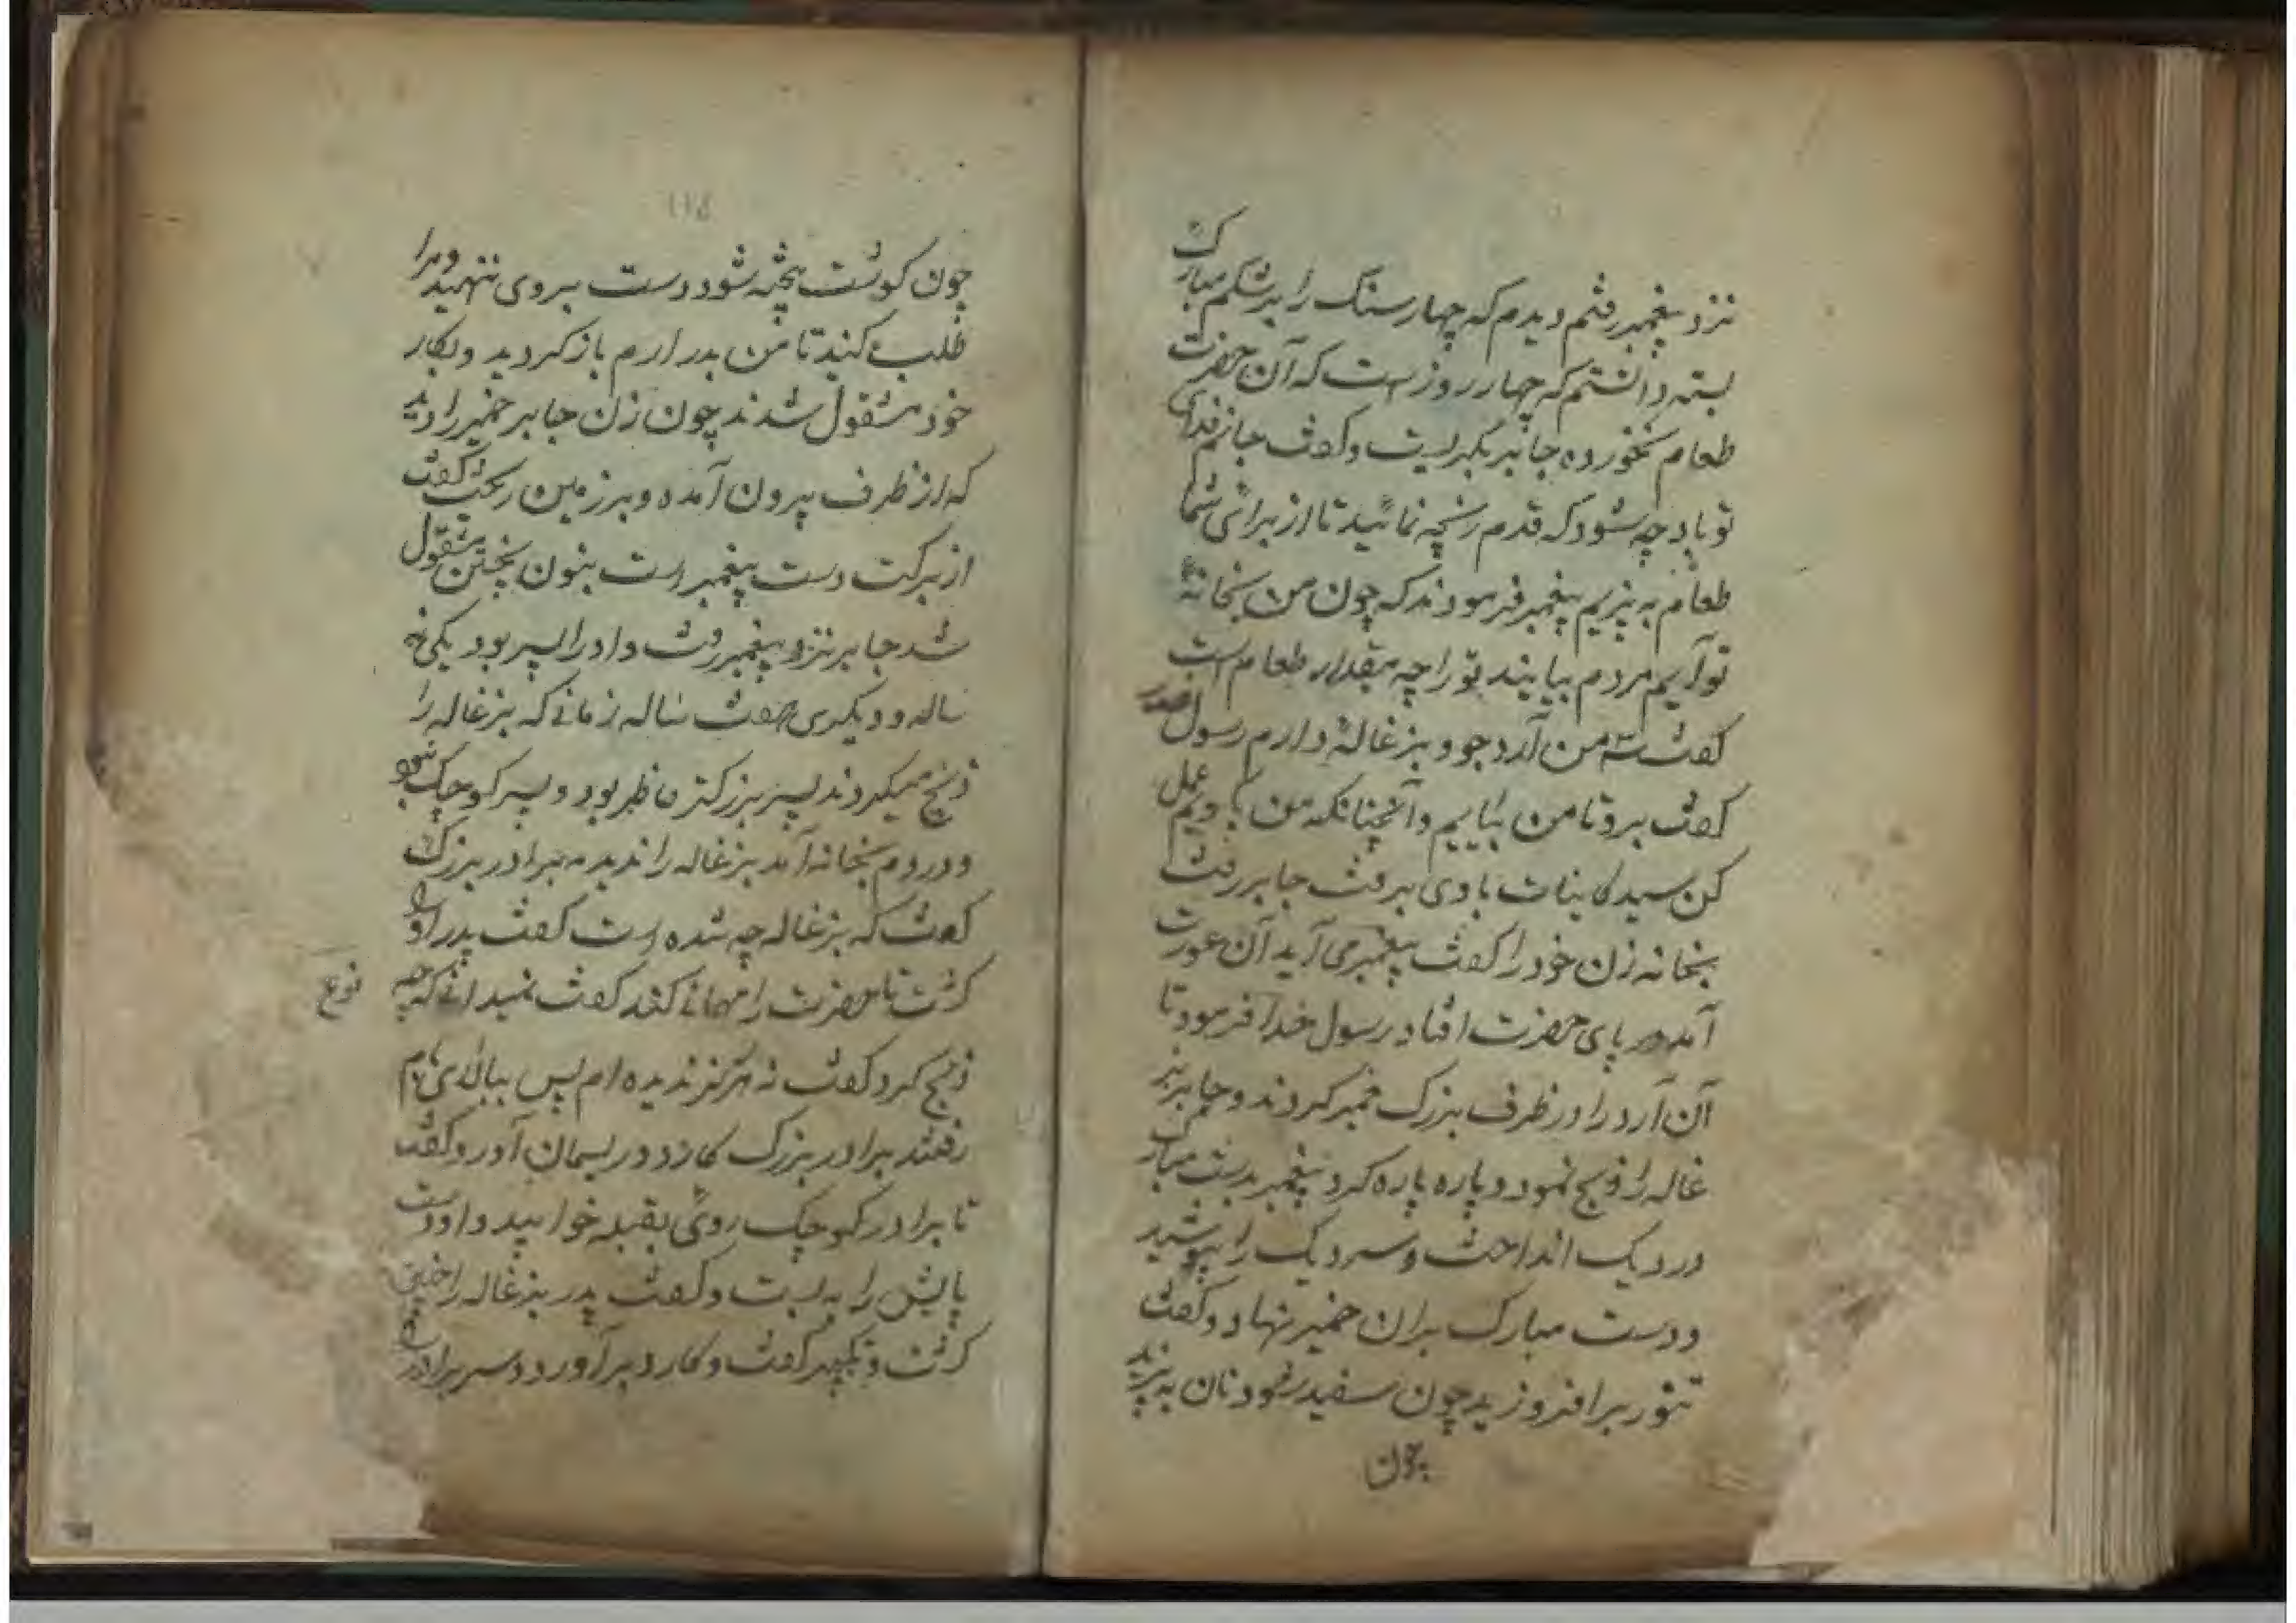 نزد پیغمبر رفتم دیدم که چهار سنک را بر شکم مبارک
بسته دانستم که چهار روز است که آن حضرت
طعام نخورده جابر بگریست و کفت جانم فدای
تو باد چه شود که قدم رنجه نمائید تا از برای شما
طعام به پزیم پیغمبر فرمودند که چون من بخانهٔ
تو آیم مردم بیایند تو را چه مقدار طعام است
کفت من آرد جو و بزغالهٔ دارم رسول
کفت برو تا من بیایم و آنچنانکه من کویم عمل
کن سید کاینات با وی برفت جابر رفت
بخانه زن خود را کفت پیغمبر می آید آن عورت
آمد در پای حضرت افتاد رسول خدا فرمود تا
آن آرد را در ظرف بزرک خمیر کردند و جابر بز
غاله را ذبح نمود و پاره پاره کرد پیغمبر بدست مبارک
در دیک انداخت و سر دیک را بپوشید
و دست مبارک بران خمیر نهاد و کفت
تنور بر افروزید چون سفید شود نان به پزید
چون
۱۱۵
چون کوشت پخته شود دست بروی ننهید و مرا
طلب کنید تا من بدر ارم باز کردید و بکار
خود مشقول شدند چون زن جابر خمیر را دید
که از ظرف بیرون آمده و بر زمین ریخت کفت
از برکت دست پیغمبر است بنون پختن مشقول
شد جابر نزد پیغمبر رفت و او را پسر بود یکی نه
ساله و دیکری هفت ساله زمانی که بزغاله را
ذبح میکردند پسر بزرکتر حاظر بود و پسر کوچک نبود
و در دم بخانه آمد بزغاله را ندید به برادر بزرک
کفت که بزغاله چه شده است کفت پدر او را
کشت تا حضرت را مهمانی کند کفت نمیدانی که چه نوع
ذبح کرد کفت نه هرکز ندیده ام پس ببالای بام
رفتند برادر بزرک کارد و ریسمان آورد و کفت
تا برادر کوچک روی بقبله خوابید و او دست
پایش را به بست و کفت پدر بزغاله را چنین
کشت و تکبیر کفت و کارد بر آورد و سر برادر